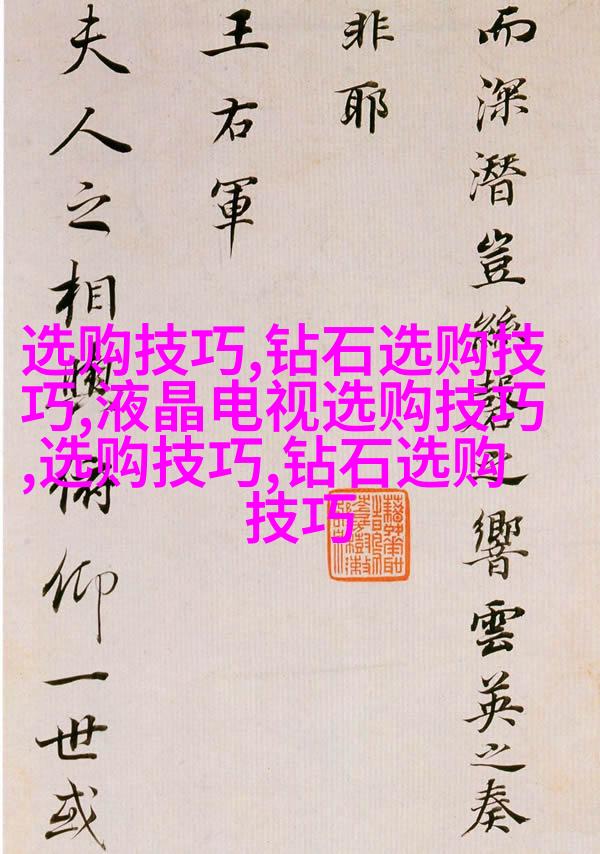 而深潛豈絲磬之響雲英之奏
非耶
王右軍
夫人之相與俯仰一世或
选购技巧,钻石选购技
巧,液晶电视选购技巧
,选购技巧,钻石选购
技巧